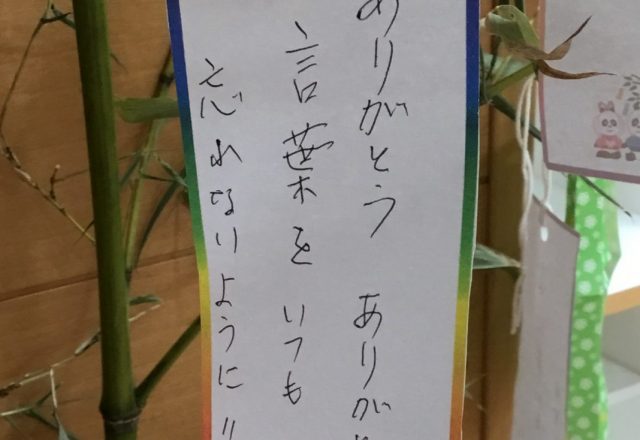 ありがとう ありがと
言葉を いつも
忘れないように !!